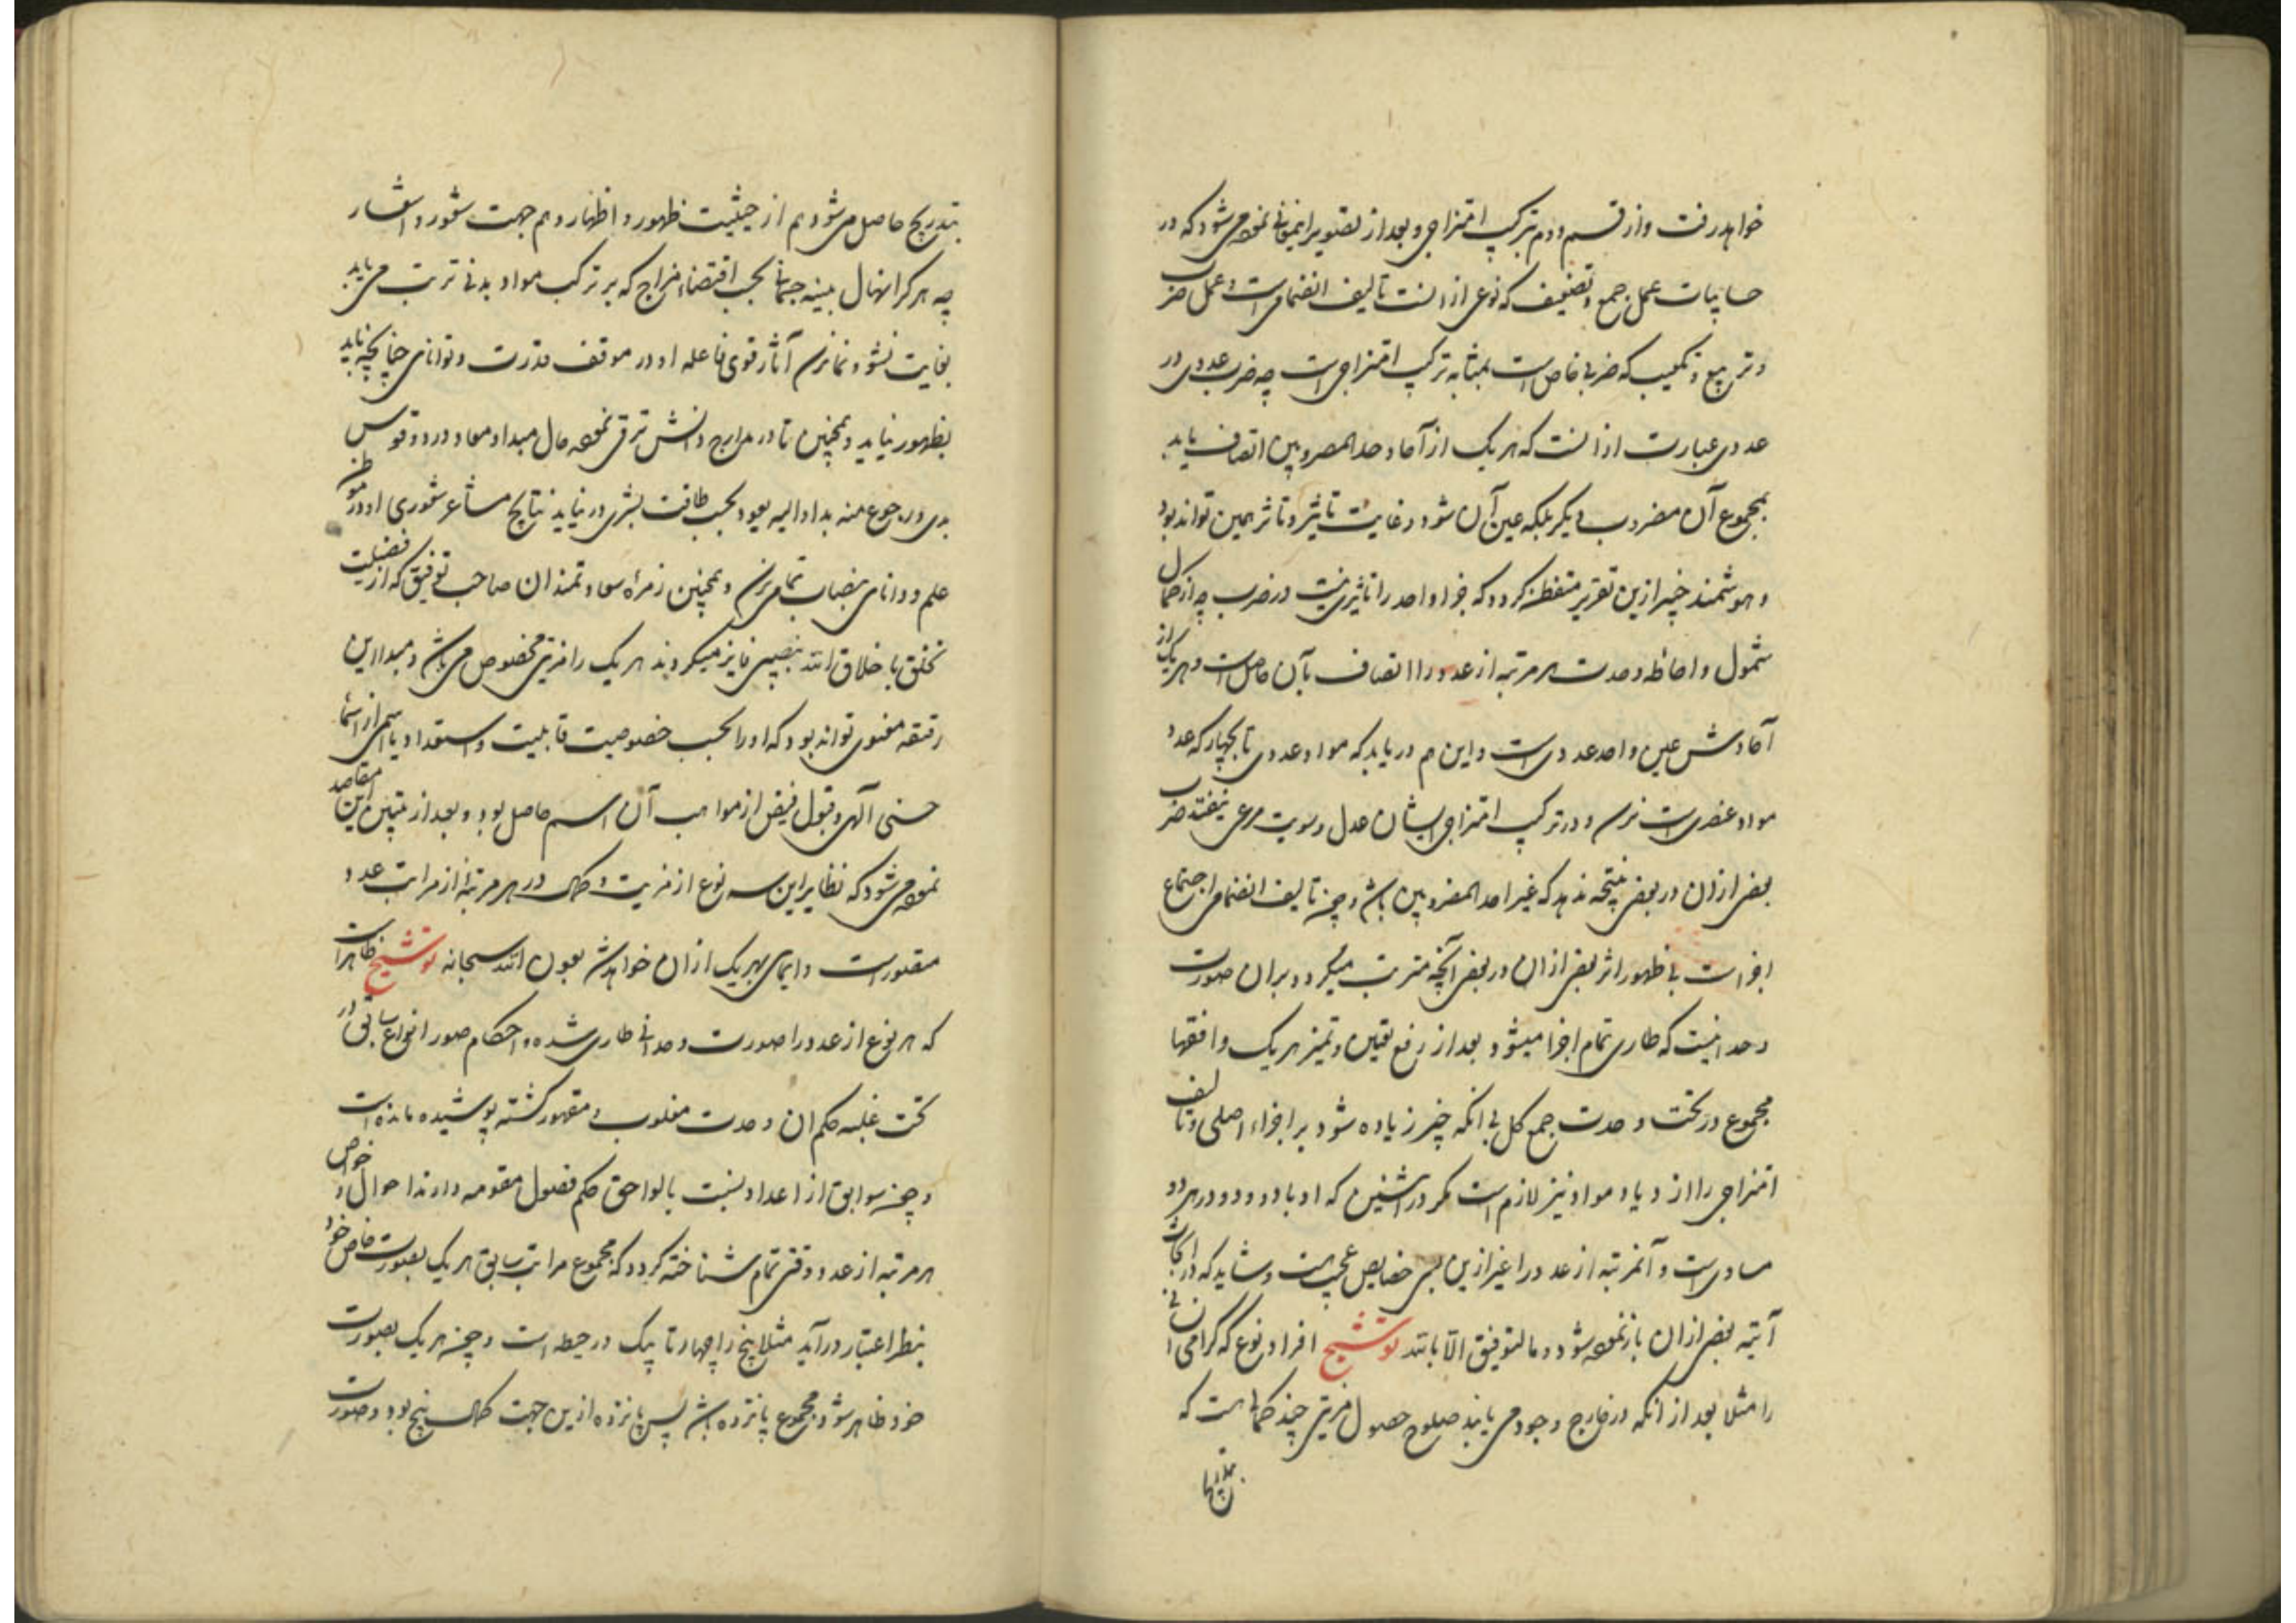 خواهد رفت و از قسم دوم ترکیب امتزاجی و بعد از تصویر این معانی نموده می‌شود که در
حسابیات عمل جمع و تضعیف که نوعی از آنست تالیف انضمامی است و عمل ضرب
و تربیع و تکعیب که ضربی خاص است بمثابه ترکیب امتزاجی است چه ضرب عددی در
عددی عبارت از آنست که هر یک از آحاد احد المضروبین اتصاف یابد
بمجموع آن مضروب دیگر بلکه عین آن شود و غایت تاثیر و تاثر همین تواند بود
و هوشمند خبیر ازین تقریر متفطن گردد که چرا واحد را تاثیری نیست در ضرب چه از کمال
شمول و احاطه وحدت هر مرتبه از عدد را اتصاف بآن حاصل است و هر یک از
آحادش عین واحد عددی است و این هم دریابد که مواد عددی تا بچهار که عدد
مواد عنصری است نرسد و در ترکیب امتزاجی ایشان عدل و سویت مرعی نیفتد ضرب
بعضی از آن در بعضی نتیجه ندهد که غیر احد المضروبین باشد و چون تالیف انضمامی اجتماع
اجزاست بی ظهور اثر بعضی از آن در بعضی آنچه مترتب میگردد بر آن صورت
وحدانیست که طاری تمام اجزا میشود بعد از رفع تعین و تمیز هر یک و افقها
مجموع در تحت وحدت جمع کل بی آنکه چیزی زیاده شود بر اجزاء اصلی و تالیف
امتزاجی را ازدیاد مواد نیز لازم است مگر در اثنین که او با دو و دو در هر دو
مساوی است و آنمرتبه از عدد را غیر ازین بسی خصایص عجیب هست و شاید که در ابحاث
آتیه بعضی از آن باز نموده شود و ما التوفیق الا بالله توشیح افراد نوع گرامی انسانی
را مثلا بعد از آنکه در خارج وجود می یابند صلوح حصول مزیتی چند کمالی هست که
بتدریج حاصل می‌شود هم از حیثیت ظهور و اظهار و هم جهت شعور و اشعار
چه هر کرا نهال بنیه جسمانی بحسب اقتضاء مزاج که بر ترکیب مواد بدنی ترتب می یابد
بغایت نشو و نما نرسد آثار قوی فاعله او در موقف قدرت و توانای چنانچه باید
بظهور نیاید و همچنین تا در مدارج دانش ترقی نموده حال مبدا و معاد و در دو قوس
بدو و رجوع منه بدا و الیه یعود بحسب طاقت بشری در نیابد نتایج مشاعر شعوری او در موطن
علم و دانای بنصاب تمامی نرسد و همچنین زمره سعادتمندان صاحب توفیق که از فضیلت
تخلق باخلاق الله بنصیبی فایز میگردند هر یک را مزیتی مخصوص می باشد و مبدا این
رقیقه معنوی تواند بود که او را بحسب خصوصیت قابلیت و استعداد با اسمی از اسما
حسنی الهی و قبول فیض از مواهب آن اسم حاصل بود و بعد از تبیین این مقاصد
نموده می شود که نظایر این سه نوع از مزیت و کمال در هر مرتبه از مراتب عدد
مقصور است و ایمای بهر یک از آن خواهد شد بعون الله سبحانه توشیح ظاهر است
که هر نوع از عدد را صورت وحدانی طاری شده و احکام صور انواع سابق در
تحت غلبه حکم آن وحدت مغلوب و مقهور گشته پوشیده مانده است
و چون سوابق از اعداد نسبت با لواحق حکم فصول مقومه دارند احوال و خواص
هر مرتبه از عدد وقتی تمام شناخته گردد که مجموع مراتب سابق هر یک بصورت خاص خود
بنظر اعتبار درآید مثلا پنج را چهار تا یک در حیطه است و چون هر یک بصورت
خود ظاهر شود مجموع پانزده باشد پس پانزده ازین جهت کمال پنج بود و صورت